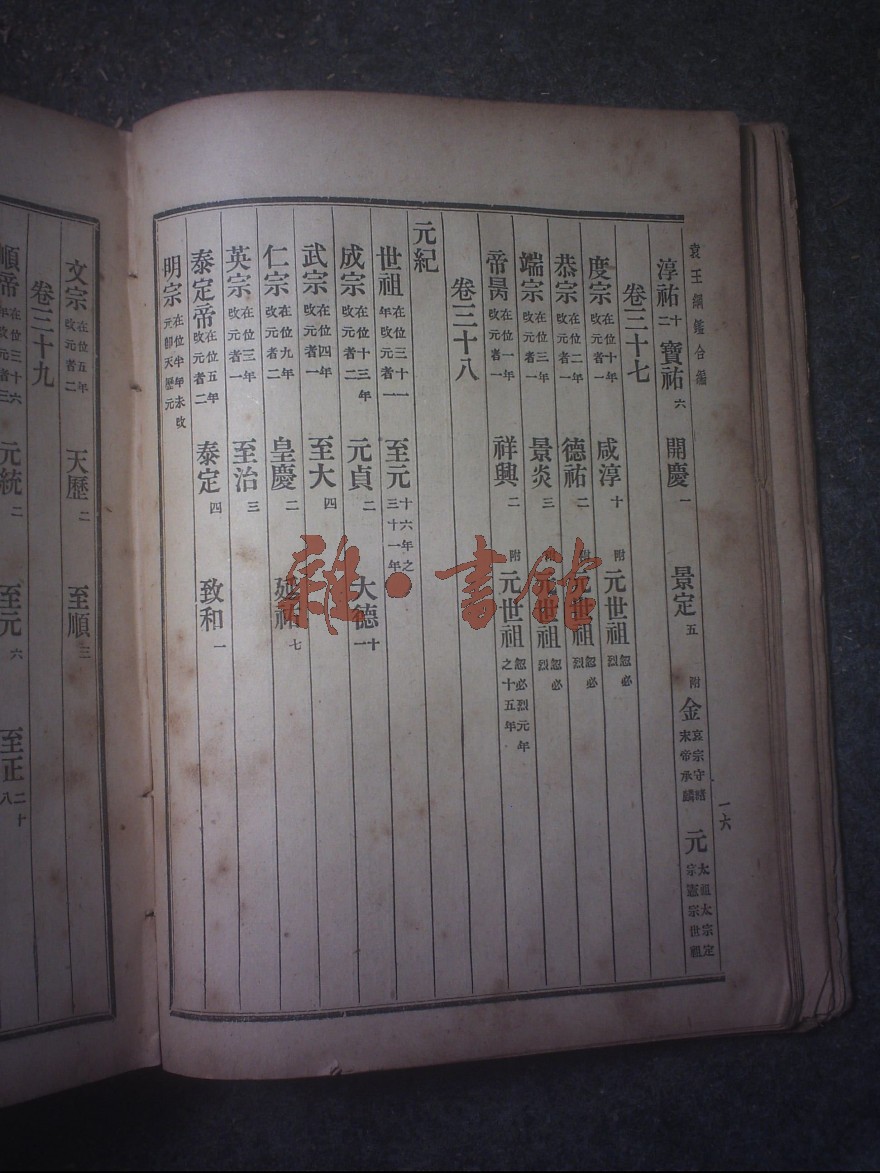 袁王綱鑑合編
淳祐十二 寶祐六 開慶一 景定五 附金哀宗守緒末帝承麟 元太祖太宗定宗憲宗世祖
卷三十七
度宗在位十年改元者一 咸淳十 附元世祖忽必烈
恭宗在位二年改元者一 德祐二 附元世祖忽必烈
端宗在位二年改元者一 景炎三 附元世祖忽必烈
帝昺在位一年改元者一 祥興二 附元世祖忽必烈元年之十五年
卷三十八
元紀
世祖在位三十一年改元者一 至元十六年之三十一年
成宗在位十三年改元者二 元貞二 大德十一
武宗在位四年改元者一 至大四
仁宗在位九年改元者二 皇慶二 延祐七
英宗在位三年改元者一 至治三
泰定帝在位五年改元者二 泰定四 致和一
明宗在位半年未改元卽天歷元
一六
文宗在位五年改元者二 天歷二 至順三
卷三十九
順帝在位三十六年改元者三 元統二 至元六 至正二十八
雜·書館